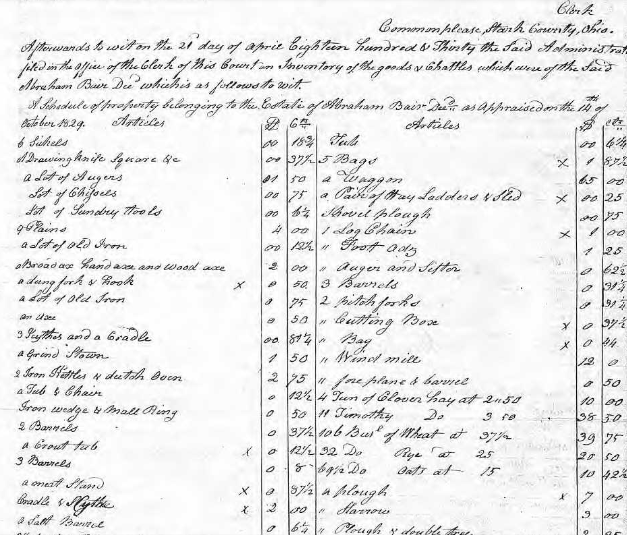 Clerk
Commonplease, Stark County, Ohio.
Afterwards to wit on the 21st day of april Eighteen hundred & Thirty the Said Administrat
filed in the office of the Clerk of this Court an Inventory of the goods & Chattles which were of the Said
Abraham Bair Decd which is as follows to wit.
A Schedule of property belonging to the Estate of Abraham Bair Decd as Appraised on the 14th of
October 1829. Articles $ Cts Articles $ cts
6 Sickels 00 18¾ Tub 00 6¼
A Drawing knife Square &c 00 37½ 5 Bags x 1 87½
a Lot of Augers 01 50 a Waggon 65 00
Lot of Chissels 00 75 a Pair of Hay Ladders & Sled x 00 25
Lot of Sundry Tools 00 6¼ Shovel plough 00 75
9 Plains 4 00 1 Log Chain x 1 00
a Lot of Old Iron 00 12½ " Foot Adz 1 25
a Broad axe hand axe and wood axe 2 00 " Auger and 0 62½
a dung fork & hook x 0 50 3 Barrels 0 31¼
a Lot of Old Iron 0 75 2 pitchforks 0 31¼
an axe 0 50 " Cutting Box x 0 37½
3 Scythes and a Cradle 00 81¼ " Bay x 0 44
a Grind Stown 1 50 " Wind mill 12 0
2 Iron Kettles & dutch Oven 2 75 " fore plane & barrel 0 50
a Tub & Chain 0 12½ 4 Tun of Clover hay at 2"50 10 00
Iron wedge & Mall Ring 0 50 11 Timothy Do 3 50 38 50
2 Barrels 0 37½ 106 Busl of Wheat at 37½ 39 75
a Crout tub x 0 12½ 82 Do Rye at 25 20 50
3 Barrels 0 8 69½ Do Oats at 15 10 42½
a meat Stand x 0 87½ a plough x 7 00
Cradle & Scythe x 2 00 " Harrow 3 00
a Salt Barrel 0 6¼ " Plough & double tree